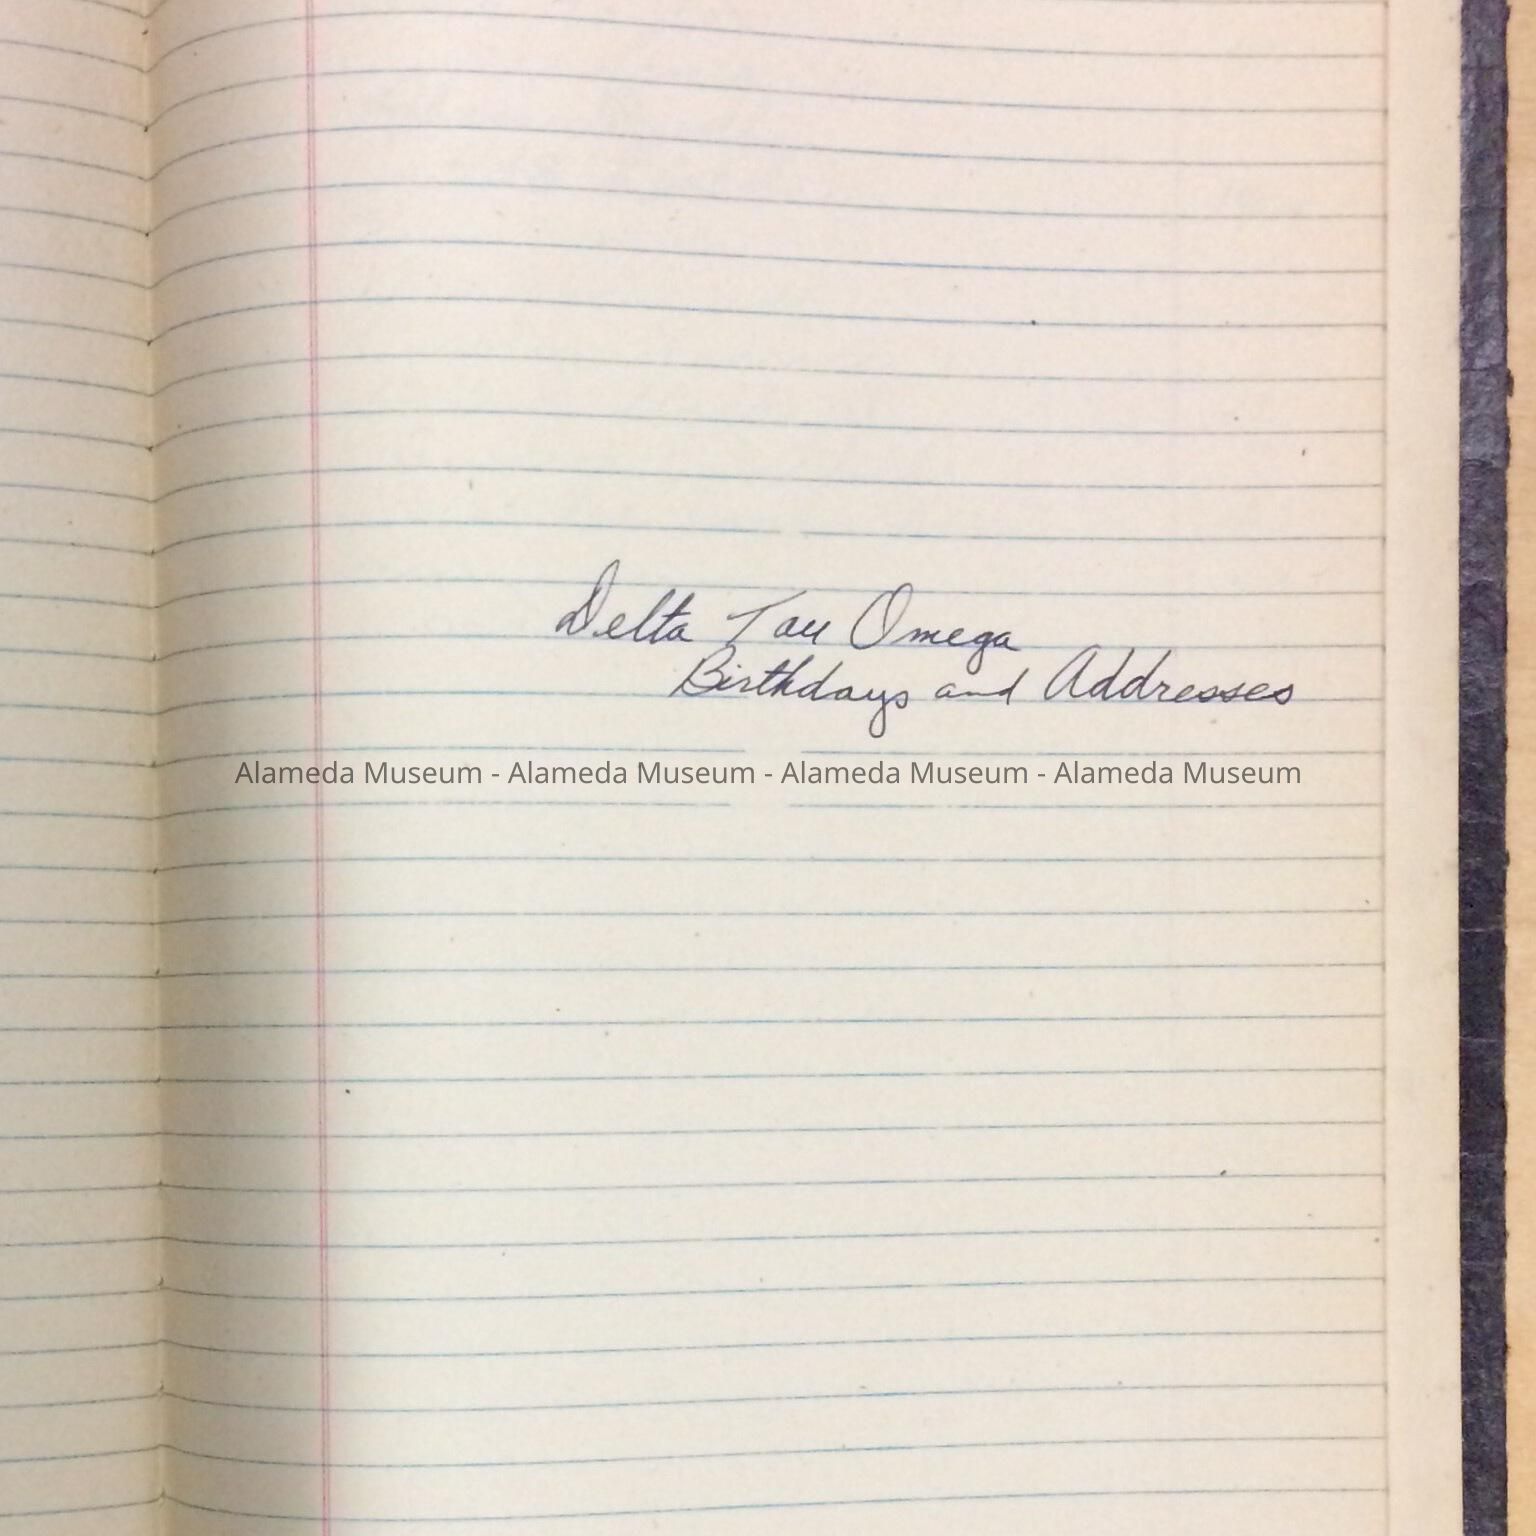 Delta Tau Omega
Birthdays and Addresses
Alameda Museum - Alameda Museum - Alameda Museum - Alameda Museum